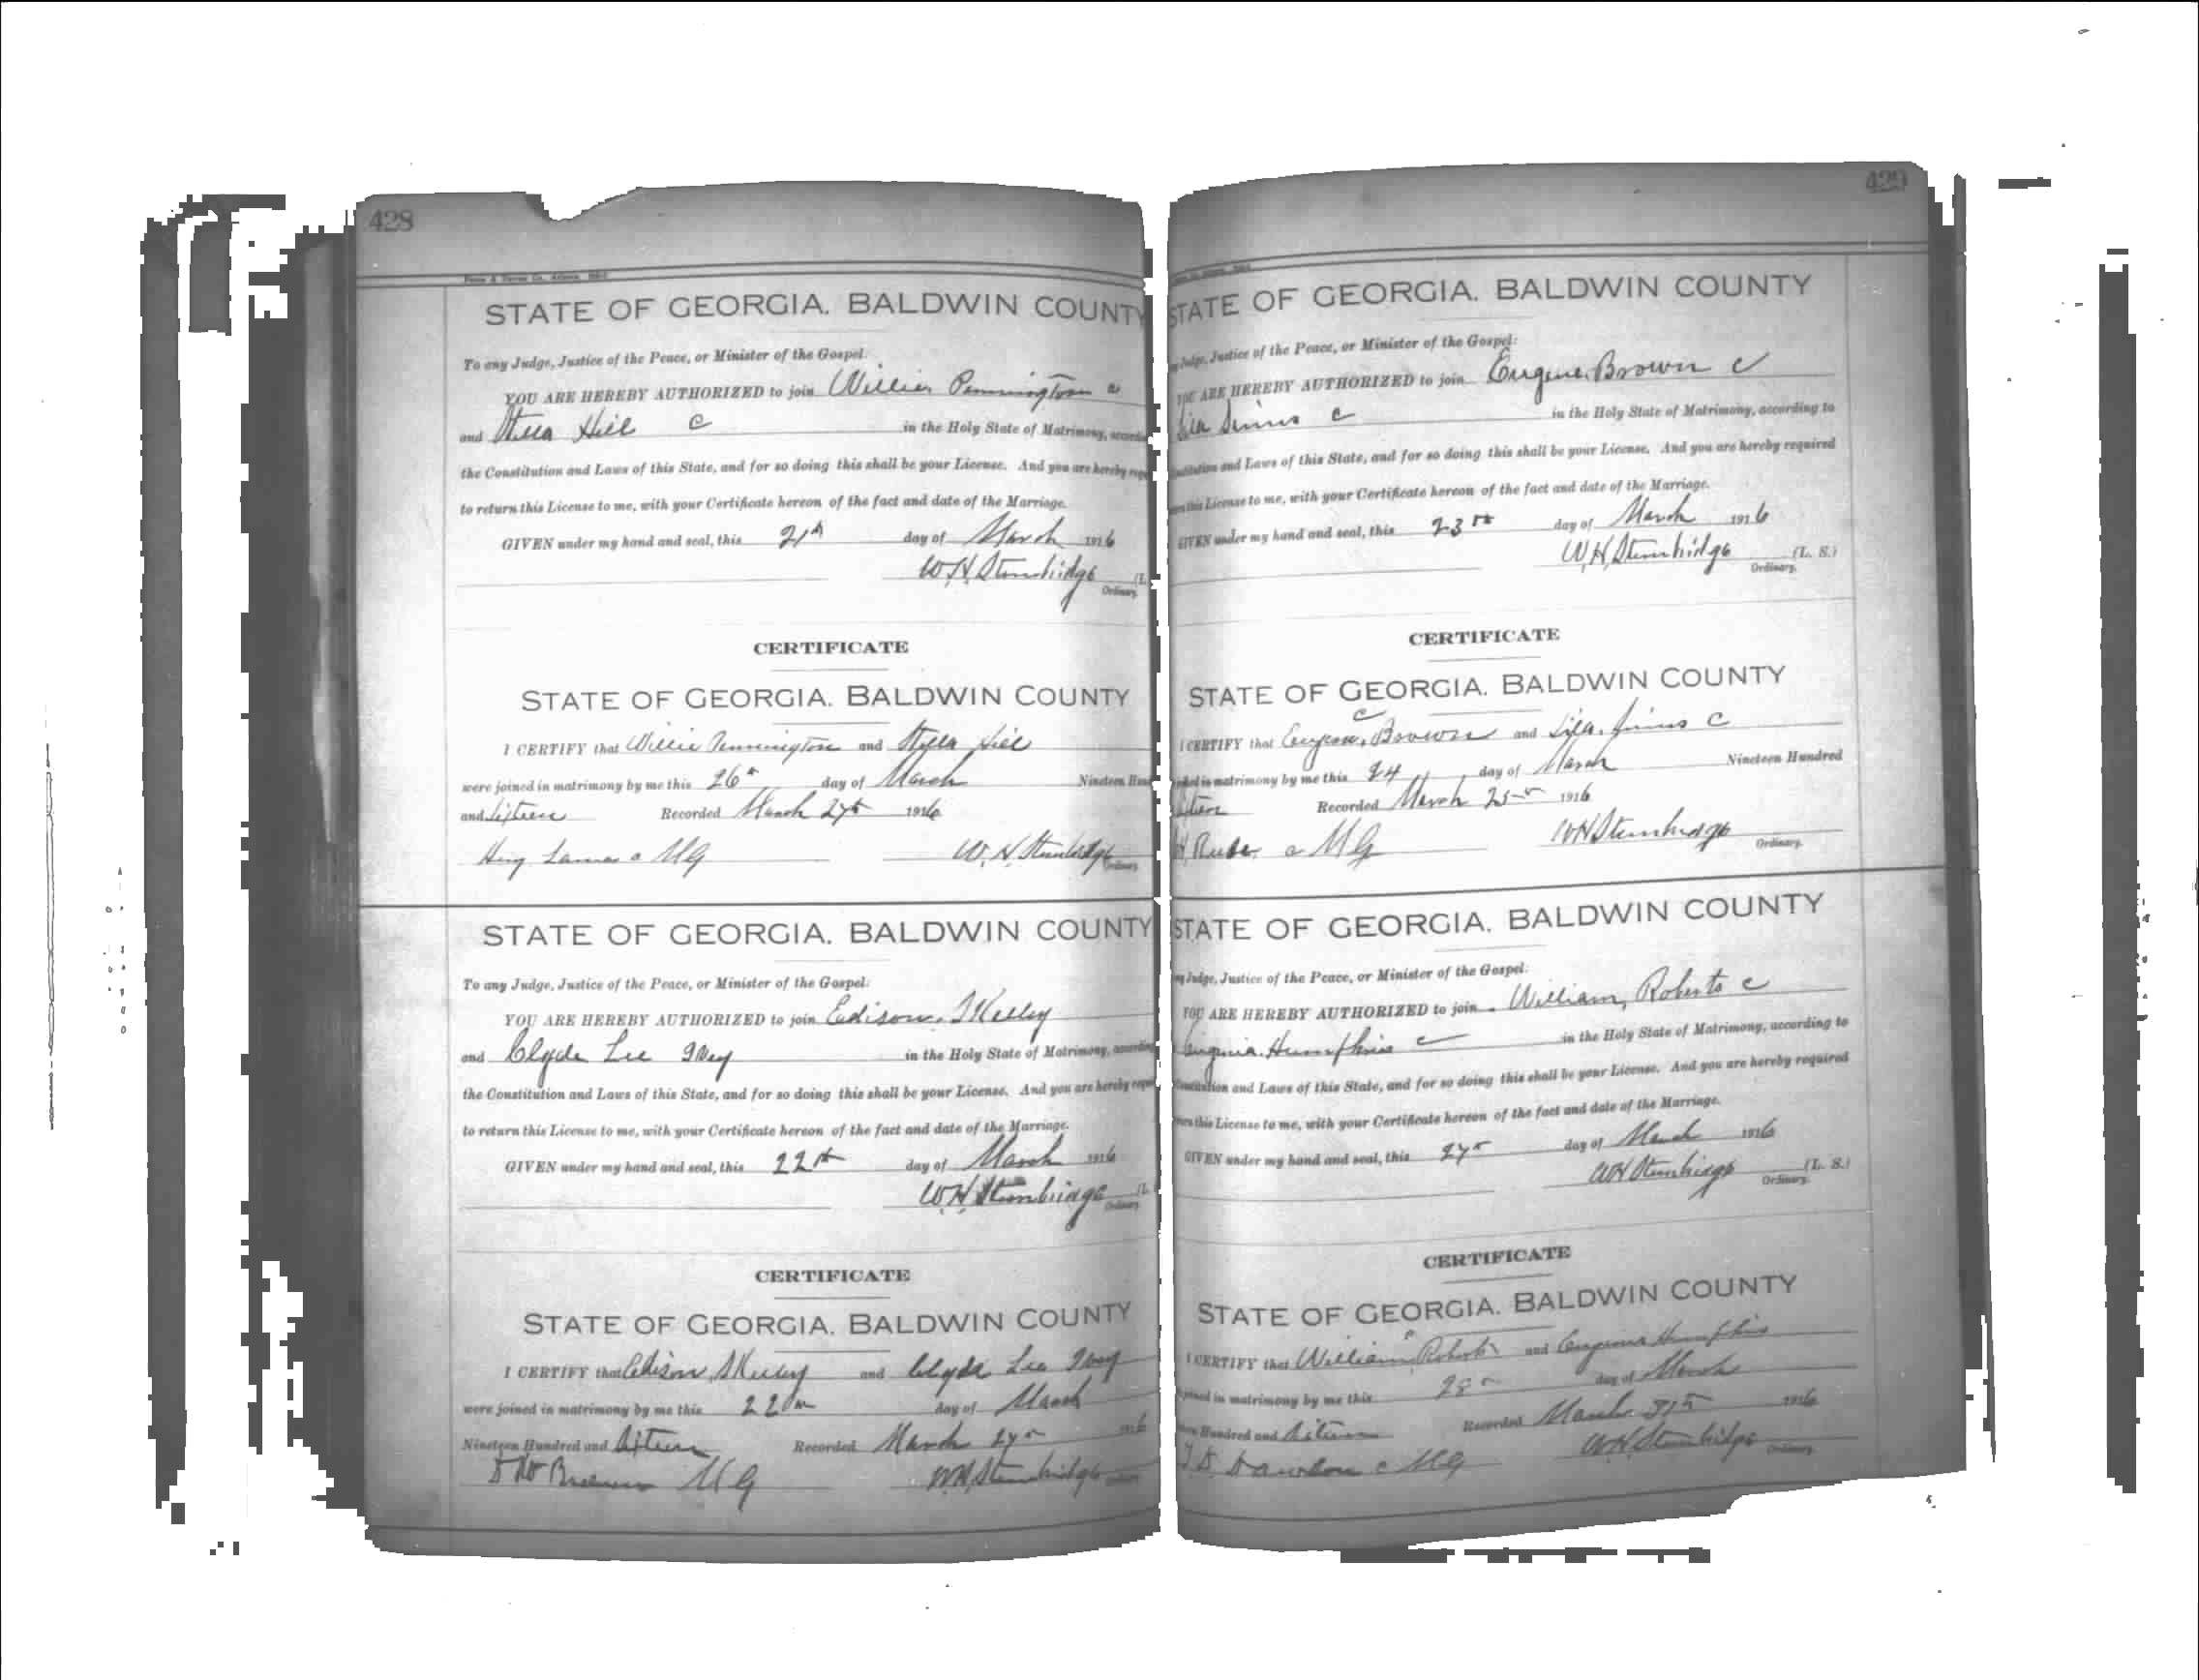 428
STATE OF GEORGIA. BALDWIN COUNTY
To any Judge, Justice of the Peace, or Minister of the Gospel:
YOU ARE HEREBY AUTHORIZED to join Willie Pennington c
and Stella Hill c in the Holy State of Matrimony,
the Constitution and Laws of this State, and for so doing this shall be your License. And you are hereby
to return this License to me, with your Certificate hereon of the fact and date of the Marriage.
GIVEN under my hand and seal, this day of March 1916
W.H. Stembridge (L.
Ordinary.
CERTIFICATE
STATE OF GEORGIA. BALDWIN COUNTY
I CERTIFY that Willie Pennington and Stella Hill
were joined in matrimony by me this 26th day of March Nineteen
and Sixteen Recorded March 27th 1916
M G W. H. Stembridge
Ordinary
STATE OF GEORGIA. BALDWIN COUNTY
To any Judge, Justice of the Peace, or Minister of the Gospel:
YOU ARE HEREBY AUTHORIZED to join Edison
and Clyde Lee Ivey in the Holy State of Matrimony,
the Constitution and Laws of this State, and for so doing this shall be your License. And you are hereby
to return this License to me, with your Certificate hereon of the fact and date of the Marriage.
GIVEN under my hand and seal, this 22th day of March 1916
W.H. Stembridge
Ordinary
CERTIFICATE
STATE OF GEORGIA. BALDWIN COUNTY
I CERTIFY that Edison and Clyde Lee Ivey
were joined in matrimony by me this day of March
Nineteen Hundred and Sixteen Recorded March 27th 1916
M G W.H. Stembridge
429
STATE OF GEORGIA. BALDWIN COUNTY
Judge, Justice of the Peace, or Minister of the Gospel:
YOU ARE HEREBY AUTHORIZED to join Eugene Brown c
c in the Holy State of Matrimony, according to
and Laws of this State, and for so doing this shall be your License. And you are hereby required
this License to me, with your Certificate hereon of the fact and date of the Marriage.
GIVEN under my hand and seal, this 23rd day of March 1916
W.H. Stembridge (L. S.)
Ordinary.
CERTIFICATE
STATE OF GEORGIA. BALDWIN COUNTY
c
I CERTIFY that Eugene Brown and c
in matrimony by me this 24 day of March Nineteen Hundred
Recorded March 25th 1916
c M G W H Stembridge
Ordinary.
STATE OF GEORGIA. BALDWIN COUNTY
Judge, Justice of the Peace, or Minister of the Gospel:
YOU ARE HEREBY AUTHORIZED to join William Roberts c
Humphries c in the Holy State of Matrimony, according to
and Laws of this State, and for so doing this shall be your License. And you are hereby required
this License to me, with your Certificate hereon of the fact and date of the Marriage.
GIVEN under my hand and seal, this 27th day of March 1916
W H Stembridge (L. S.)
Ordinary.
CERTIFICATE
STATE OF GEORGIA. BALDWIN COUNTY
c
I CERTIFY that William Roberts and Humphries
in matrimony by me this 28th day of March
Hundred and Sixteen Recorded March 1916
Dawson c M G W.H. Stembridge
Ordinary